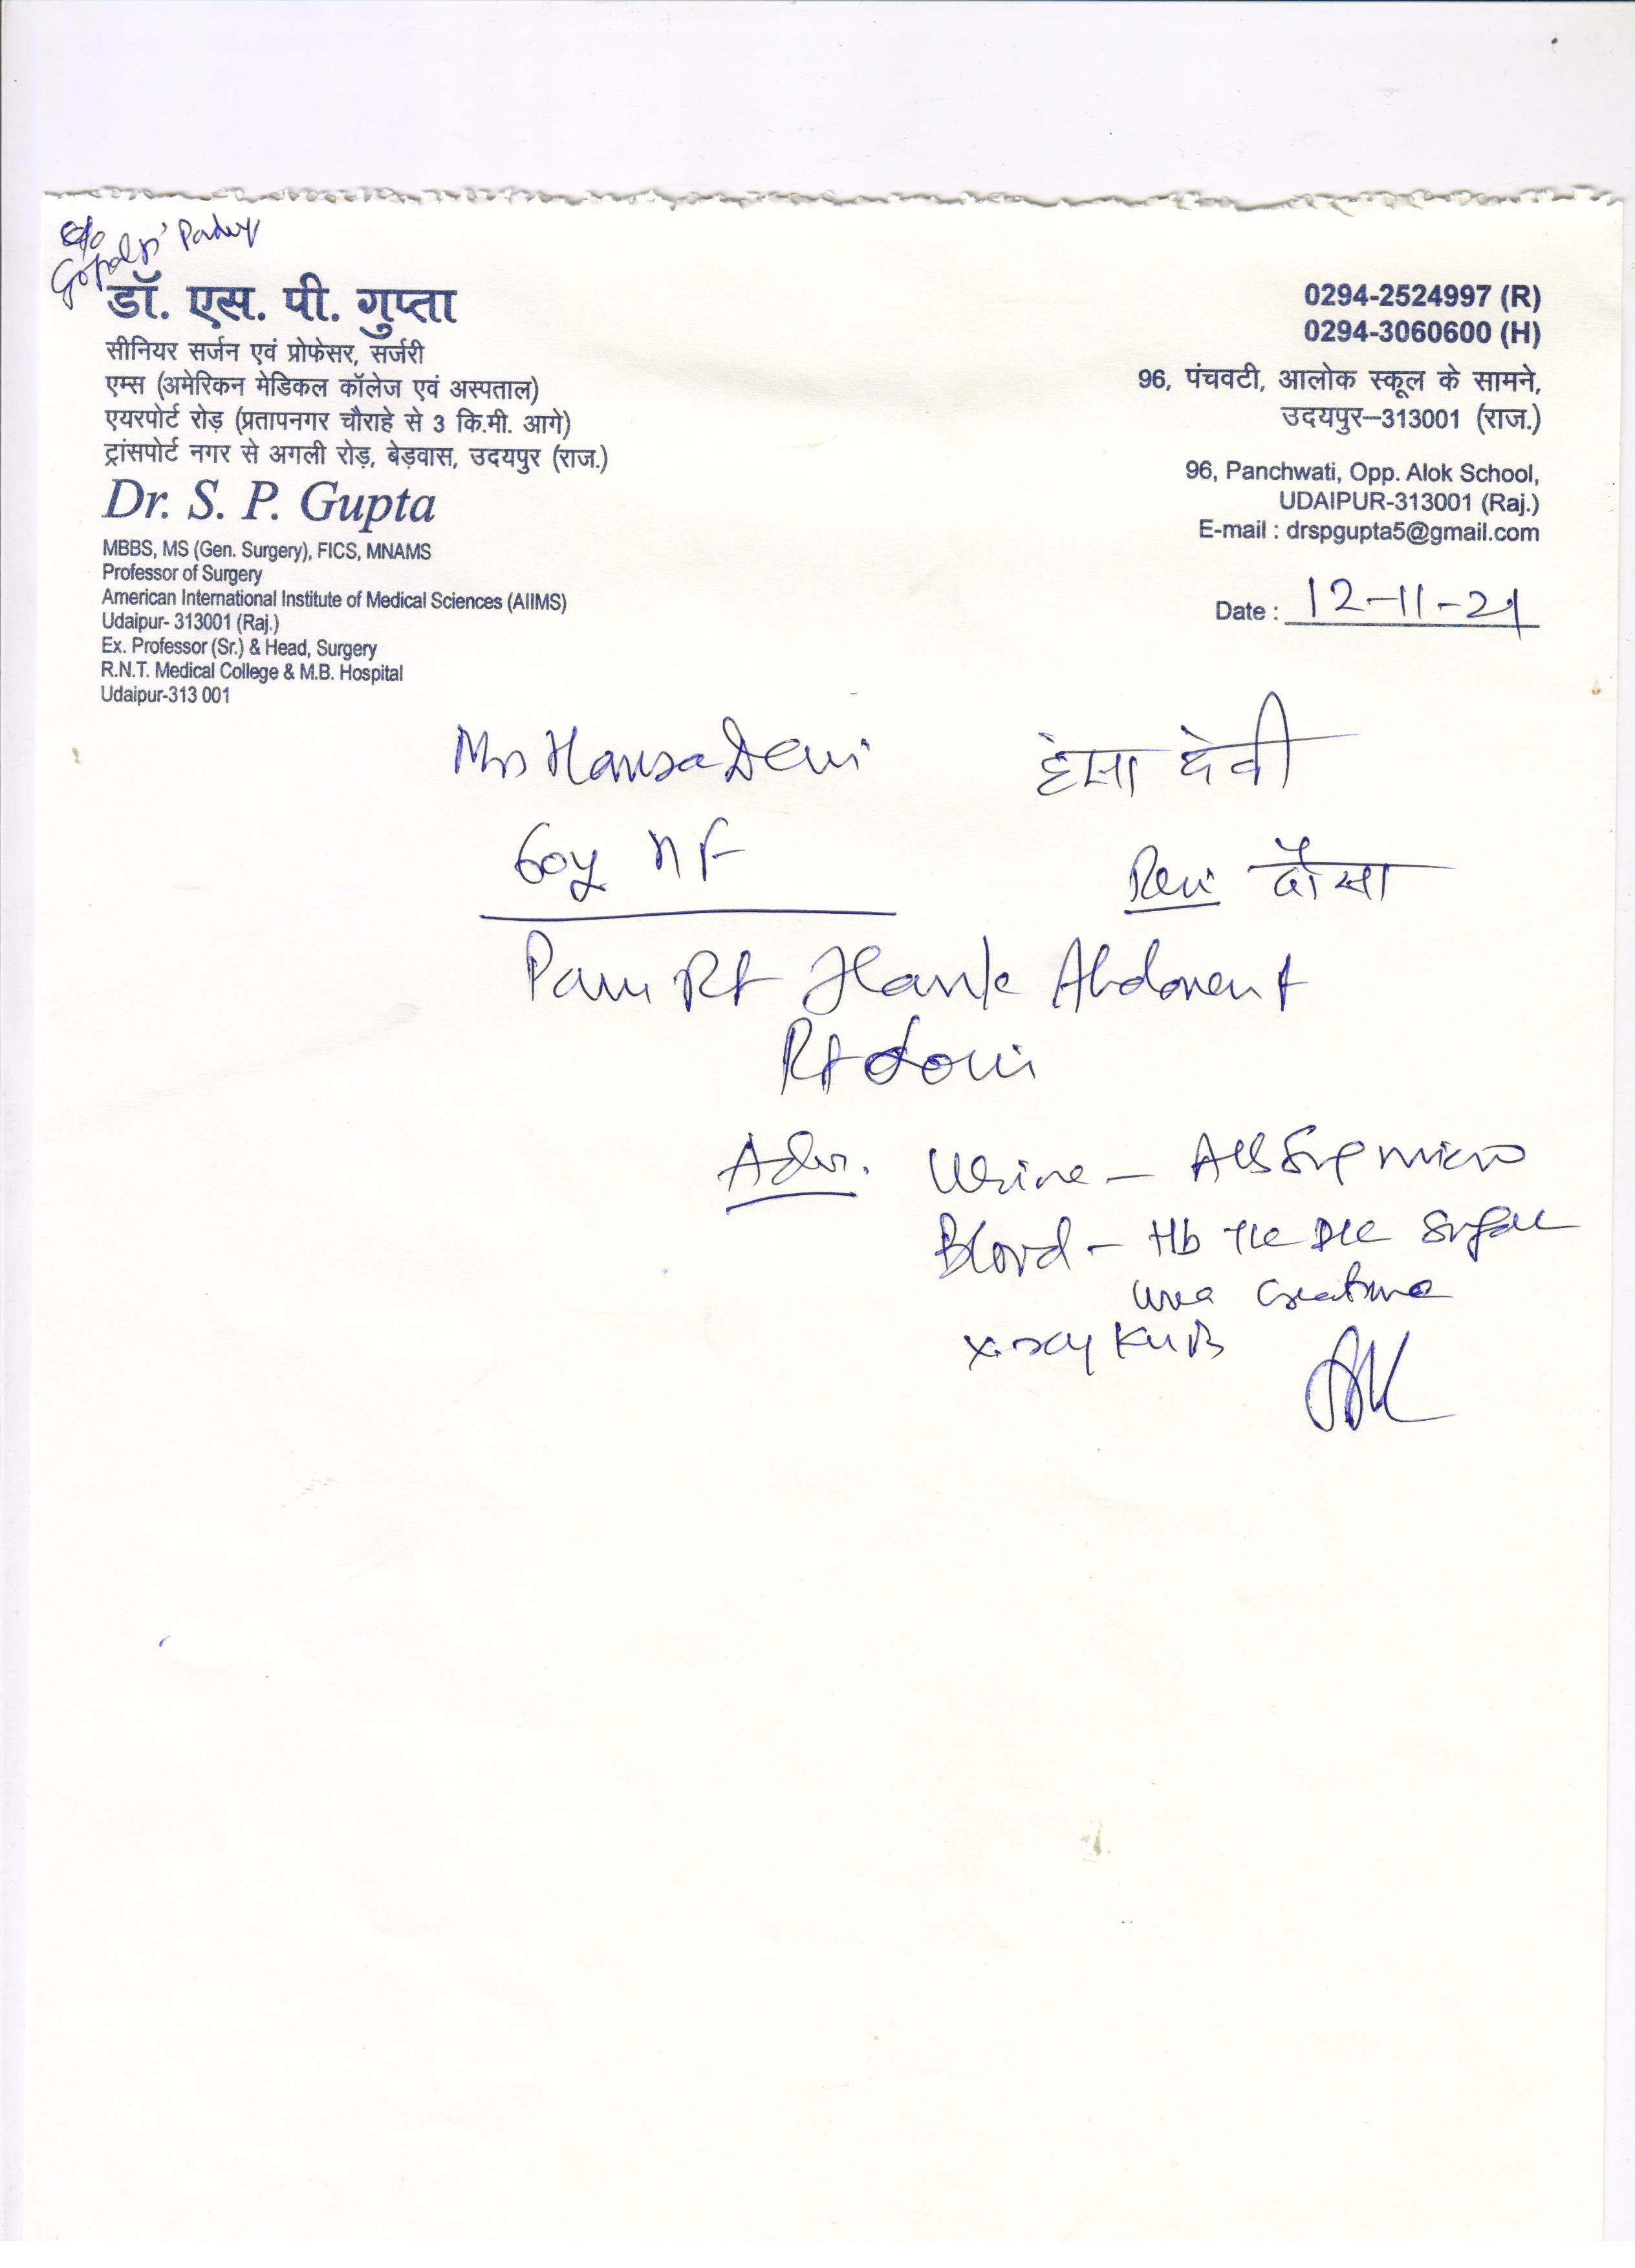 c/o
Gopalji Pandey
डॉ. एस. पी. गुप्ता
सीनियर सर्जन एवं प्रोफेसर, सर्जरी
एम्स (अमेरिकन मेडिकल कॉलेज एवं अस्पताल)
एयरपोर्ट रोड़ (प्रतापनगर चौराहे से 3 कि.मी. आगे)
ट्रांसपोर्ट नगर से अगली रोड़, बेड़वास, उदयपुर (राज.)
Dr. S. P. Gupta
MBBS, MS (Gen. Surgery), FICS, MNAMS
Professor of Surgery
American International Institute of Medical Sciences (AIIMS)
Udaipur- 313001 (Raj.)
Ex. Professor (Sr.) & Head, Surgery
R.N.T. Medical College & M.B. Hospital
Udaipur-313 001
0294-2524997 (R)
0294-3060600 (H)
96, पंचवटी, आलोक स्कूल के सामने,
उदयपुर–313001 (राज.)
96, Panchwati, Opp. Alok School,
UDAIPUR-313001 (Raj.)
E-mail : drspgupta5@gmail.com
Date : 12-11-21
Mrs Hansa Devi हंसा देवी
60y F
Pain Rt Flank Abdomen
Rt Loin
Adv. Urine – Alb Sug micro
Blood – Hb TLC DLC Sugar
Urea Creatinine
X-ray KUB